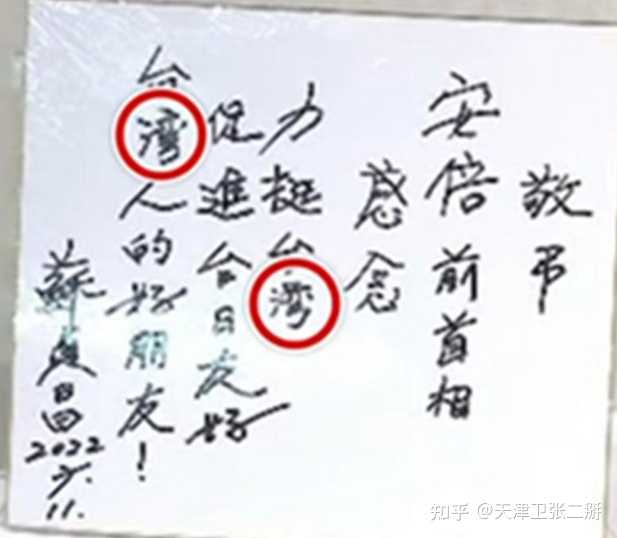 敬吊
安倍前首相
感念
力挺台灣
促進台日友好
台灣人的好朋友！
蘇貞昌
2022
7.
11.
知乎 @天津卫张二掰